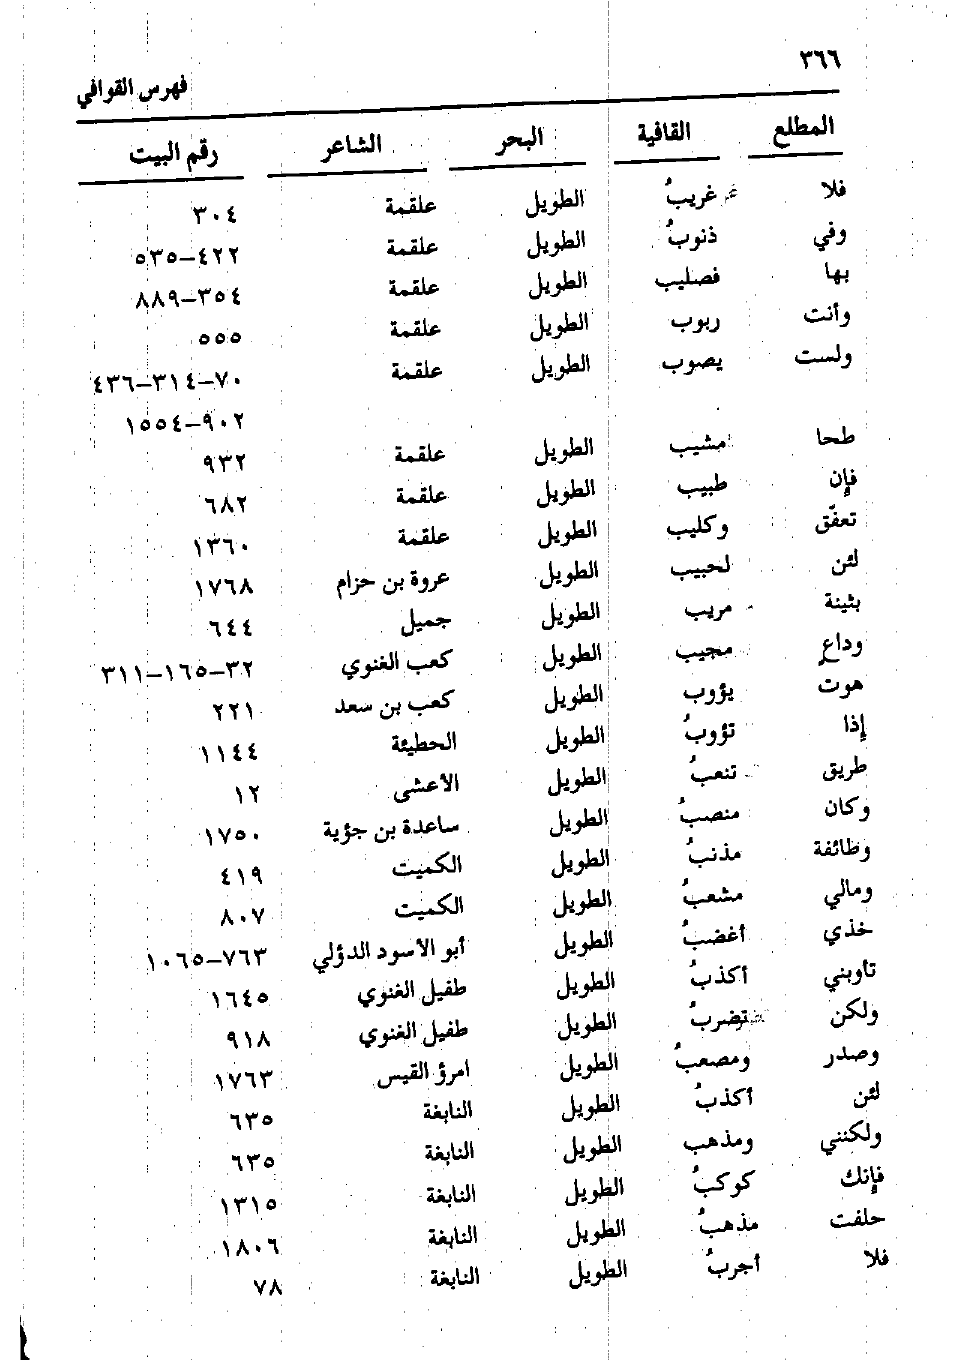 ٣٦٦
فهرس القوافي
المطلع القافية البحر الشاعر رقم البيت
فلا غريبُ الطويل علقمة ٣٠٤
وفي ذنوبُ الطويل علقمة ٤٢٢–٥٣٥
بها فصليب الطويل علقمة ٣٥٤–٨٨٩
وأنت ربوب الطويل علقمة ٥٥٥
ولست يصوب الطويل علقمة ٧٠–٣١٤–٤٣٦
٩٠٢–١٥٥٤
طحا مشيب الطويل علقمة ٩٣٢
فإن طبيب الطويل علقمة ٦٨٢
تعفّق وكليب الطويل علقمة ١٣٦٠
لئن لحبيب الطويل عروة بن حزام ١٧٦٨
بثينة مريب الطويل جميل ٦٤٤
وداعٍ مجيب الطويل كعب الغنوي ٣٢–١٦٥–٣١١
هوت يؤوب الطويل كعب بن سعد ٢٢١
إذا تؤوبُ الطويل الحطيئة ١١٤٤
طريق تنعبُ الطويل الأعشى ١٢
وكان منصبُ الطويل ساعدة بن جؤية ١٧٥٠
وظائفة مذنبُ الطويل الكميت ٤١٩
ومالي مشعبُ الطويل الكميت ٨٠٧
خذي أغضبُ الطويل أبو الأسود الدؤلي ٧٦٣–١٠٦٥
تأوبني أكذبُ الطويل طفيل الغنوي ١٦٤٥
ولكن تضربُ الطويل طفيل الغنوي ٩١٨
وصدر ومصعبُ الطويل امرؤ القيس ١٧٦٣
لئن أكذبُ الطويل النابغة ٦٣٥
ولكنني ومذهب الطويل النابغة ٦٣٥
فإنك كوكبُ الطويل النابغة ١٣١٥
حلفت مذهبُ الطويل النابغة ١٨٠٦
فلا أجربُ الطويل النابغة ٧٨